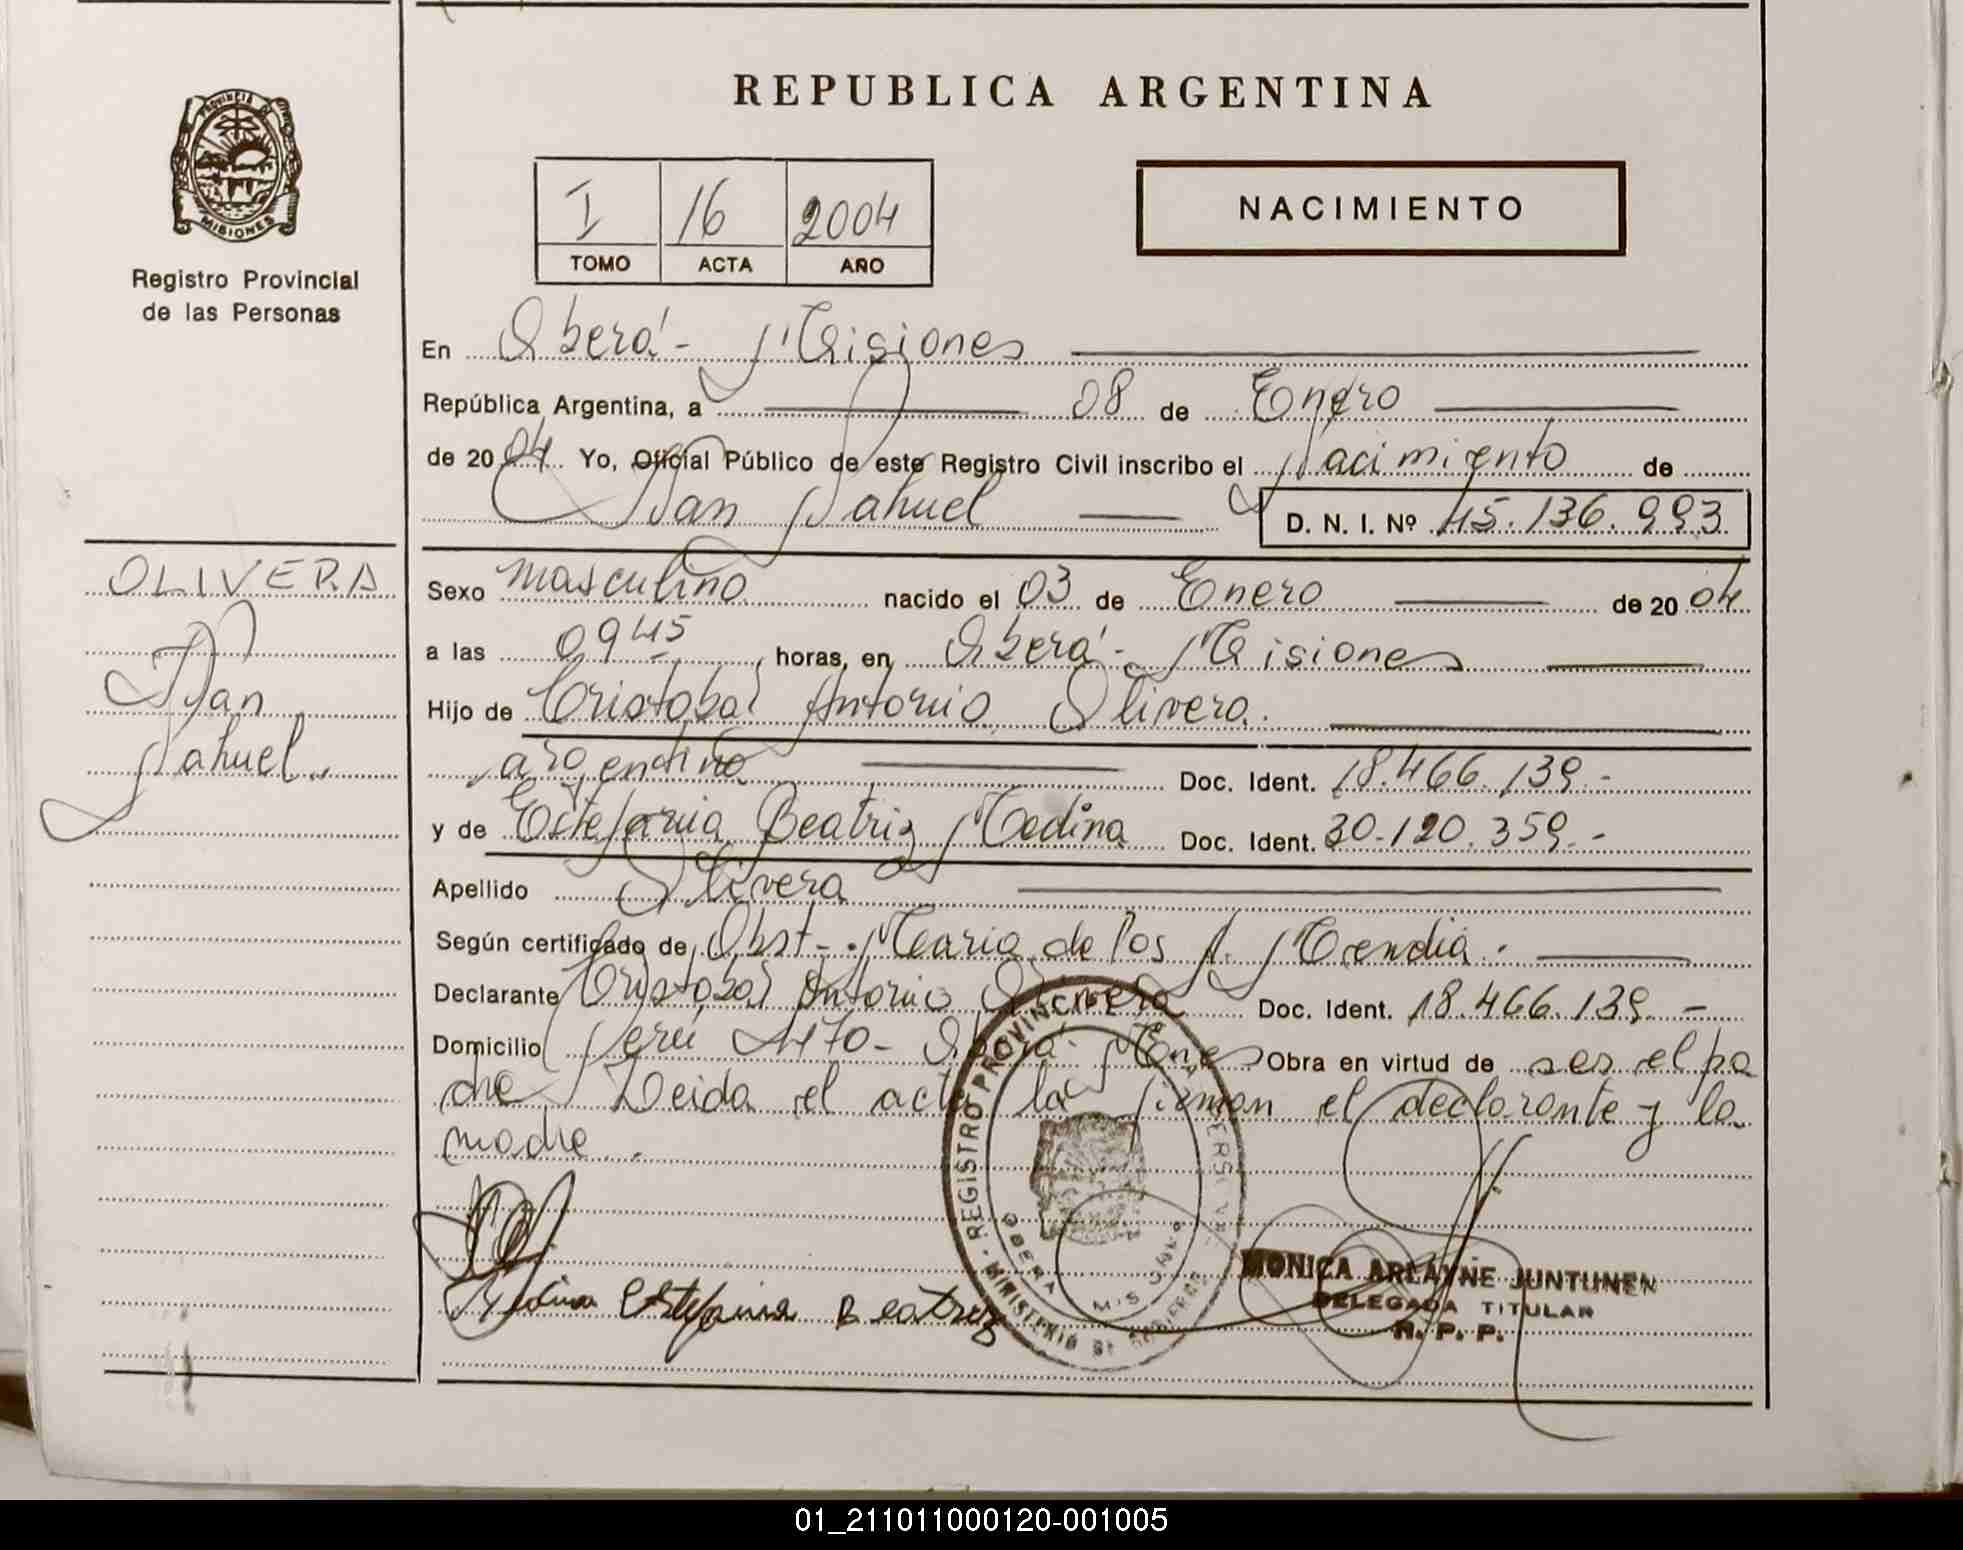 REPUBLICA ARGENTINA
PROVINCIA DE
MISIONES
Registro Provincial
de las Personas
I 16 2004
TOMO ACTA AÑO
NACIMIENTO
En Oberá - Misiones
República Argentina, a 08 de Enero
de 2004 Yo, Oficial Público de este Registro Civil inscribo el Nacimiento de
Nahuel D. N. I. Nº 45.136.993
OLIVERA
Nahuel.
Sexo masculino nacido el 03 de Enero de 2004
a las 09 45 horas, en Oberá - Misiones
Hijo de Cristobal Antonio Olivera.
argentino Doc. Ident. 18.466.139.-
y de Estefania Beatriz Medina Doc. Ident. 30.120.359.-
Apellido Olivera
Según certificado de Obst. Maria de los A. Mendia.
Declarante Cristobal Antonio Olivera Doc. Ident. 18.466.139.-
Domicilio Perú 470 - Oberá - Mnes Obra en virtud de ser el pa
dre Leida el acta la firman el declarante y la
madre.
REGISTRO PROVINCIAL DE LAS PERSONAS
OBERA MISIONES
MINISTERIO DE GOBIERNO
Medina Estefania Beatriz
MONICA ARLAYNE JUNTUNEN
DELEGADA TITULAR
R. P. P.
01_211011000120-001005